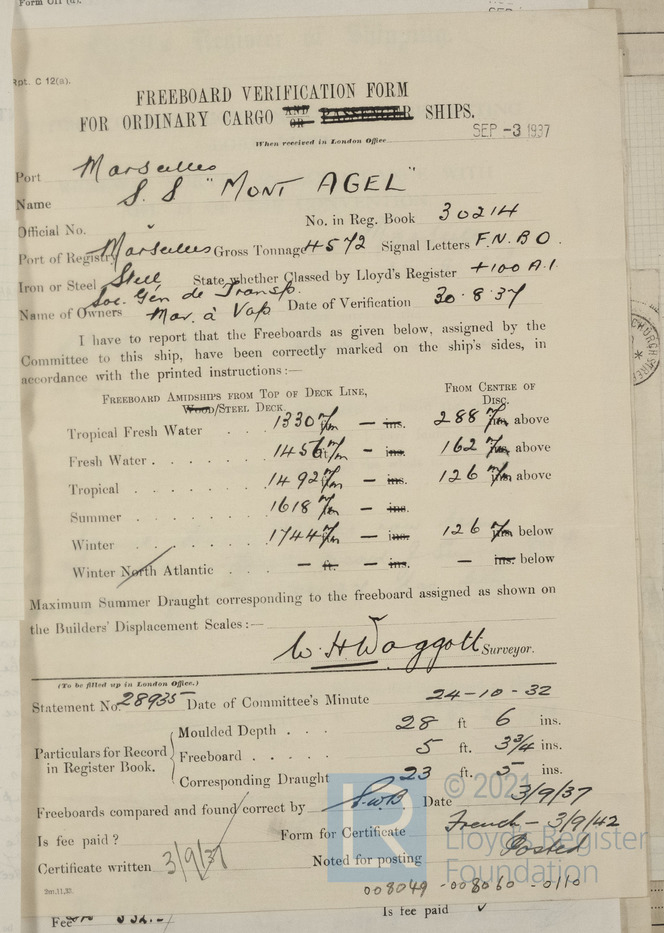 Form C11 (a).
SEP
Rpt. C 12(a).
FREEBOARD VERIFICATION FORM
FOR ORDINARY CARGO AND OR PASSENGER SHIPS.
When received in London Office SEP -3 1937
Port Marseilles
Name S.S "MONT AGEL"
Official No. No. in Reg. Book 30214
Port of Registry Marseilles Gross Tonnage 4572 Signal Letters F.N.B O.
Iron or Steel Steel State whether Classed by Lloyd's Register +100 A.1.
Name of Owners Soc. Gén de Transp. Mar. à Vap Date of Verification 30.8.37
I have to report that the Freeboards as given below, assigned by the
Committee to this ship, have been correctly marked on the ship's sides, in
accordance with the printed instructions:—
FREEBOARD AMIDSHIPS FROM TOP OF DECK LINE, FROM CENTRE OF
WOOD/STEEL DECK. DISC.
Tropical Fresh Water . . . 1330 m/m — ins. 288 m/m above
Fresh Water . . . . . 1456 m/m — ins. 162 m/m above
Tropical . . . . . . 1492 m/m — ins. 126 m/m above
Summer . . . . . . 1618 m/m — ins.
Winter . . . . . . 1744 m/m — ins. 126 m/m below
Winter North Atlantic . . . — ft. — ins. — ins. below
Maximum Summer Draught corresponding to the freeboard assigned as shown on
the Builders' Displacement Scales:—
W. H Waggott Surveyor.
(To be filled up in London Office.)
Statement No. 28935 Date of Committee's Minute 24-10-32
Particulars for Record in Register Book.
Moulded Depth . . . 28 ft 6 ins.
Freeboard . . . . . 5 ft. 3 3/4 ins.
Corresponding Draught 23 ft. 5 ins.
Freeboards compared and found correct by S.W.B Date 3/9/37
Is fee paid ? Form for Certificate French - 3/9/42
Certificate written 3/9/37 Noted for posting Posted
2m.11,32.
008049 -008060 -0110
LR
© 2021
Lloyd's Register
Foundation
Fee
Is fee paid
CHURCH STREET